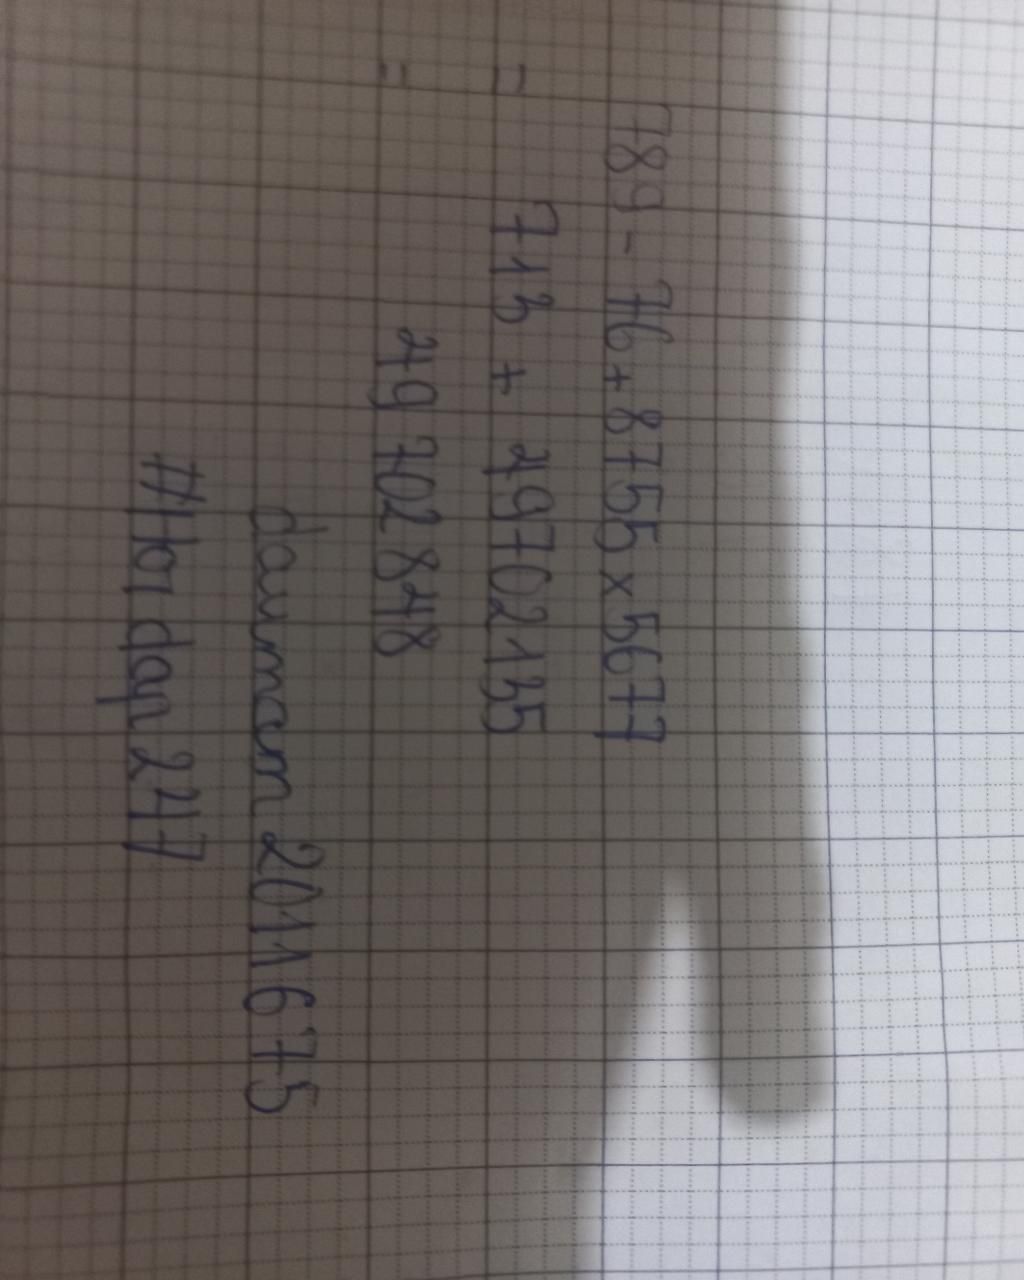 789 - 76 + 8755 x 5677
= 713 + 49702135
= 49 702 848
dauman2011675
#Hoidap247